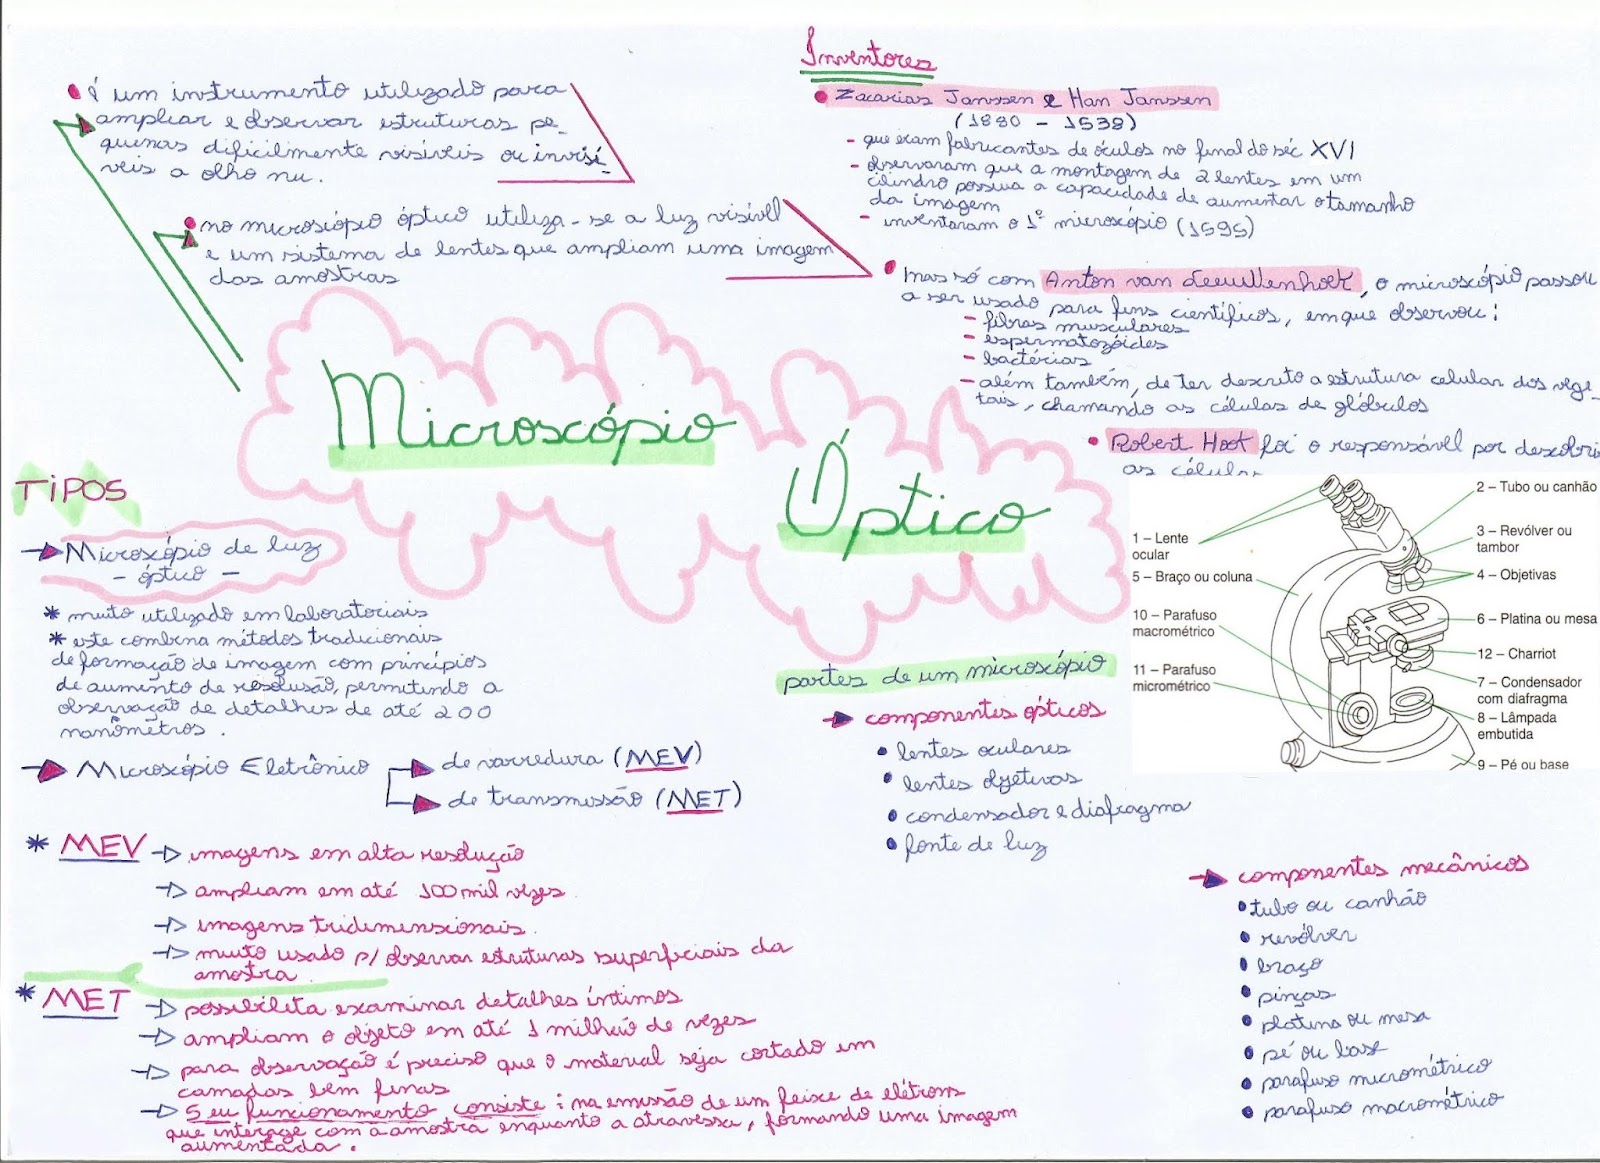 é um instrumento utilizado para
ampliar e observar estruturas pe-
quenas dificilmente visíveis ou invisí-
veis a olho nu.
no microscópio óptico utiliza-se a luz visível
e um sistema de lentes que ampliam uma imagem
das amostras
Inventores
Zacarias Janssen e Han Janssen
(1580 - 1538)
- que eram fabricantes de óculos no final do séc XVI
- observaram que a montagem de 2 lentes em um
cilindro possuia a capacidade de aumentar o tamanho
da imagem
- inventaram o 1º microscópio (1595)
mas só com Anton van Leeuwenhoek, o microscópio passou
a ser usado para fins científicos, em que observou:
- fibras musculares
- espermatozóides
- bactérias
- além também, de ter descrito a estrutura celular dos vege-
tais, chamando as células de glóbulos
Robert Hoot foi o responsável por descobrir
as células
Microscópio
Óptico
TIPOS
Microscópio de luz
- óptico -
* muito utilizado em laboratoriais
* este combina métodos tradicionais
de formação de imagem com princípios
de aumento de resolusão, permitindo a
observação de detalhes de até 200
nanômetros.
Microscópio Eletrônico
de varredura (MEV)
de transmissão (MET)
* MEV
imagens em alta resolução
ampliam em até 100 mil vezes.
imagens tridimensionais.
muito usado p/ observar estruturas superficiais da
amostra
* MET
possibilita examinar detalhes íntimos
ampliam o objeto em até 1 milhão de vezes
para observação é preciso que o material seja cortado em
camadas bem finas
Seu funcionamento consiste: na emissão de um feixe de elétrons
que interage com a amostra enquanto a atravessa, formando uma imagem
aumentada.
partes de um microscópio
componentes ópticos
• lentes oculares
• lentes objetivas
• condensador e diafragma
• fonte de luz
componentes mecânicos
• tubo ou canhão
• revólver
• braço
• pinças
• platina ou mesa
• pé ou base
• parafuso micrométrico
• parafuso macrométrico
1 – Lente
ocular
5 – Braço ou coluna
10 – Parafuso
macrométrico
11 – Parafuso
micrométrico
2 – Tubo ou canhão
3 – Revólver ou
tambor
4 – Objetivas
6 – Platina ou mesa
12 – Charriot
7 – Condensador
com diafragma
8 – Lâmpada
embutida
9 – Pé ou base